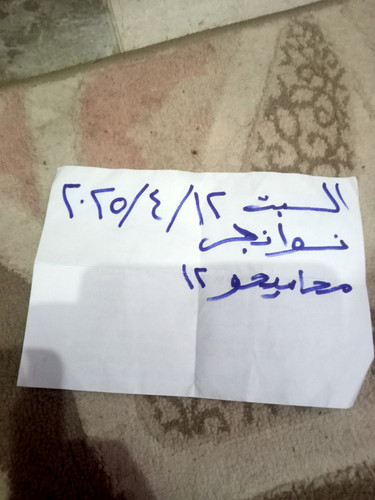 السبت ١٢/٤/٢٠٢٥
نوانجر
معاميعو ١٢